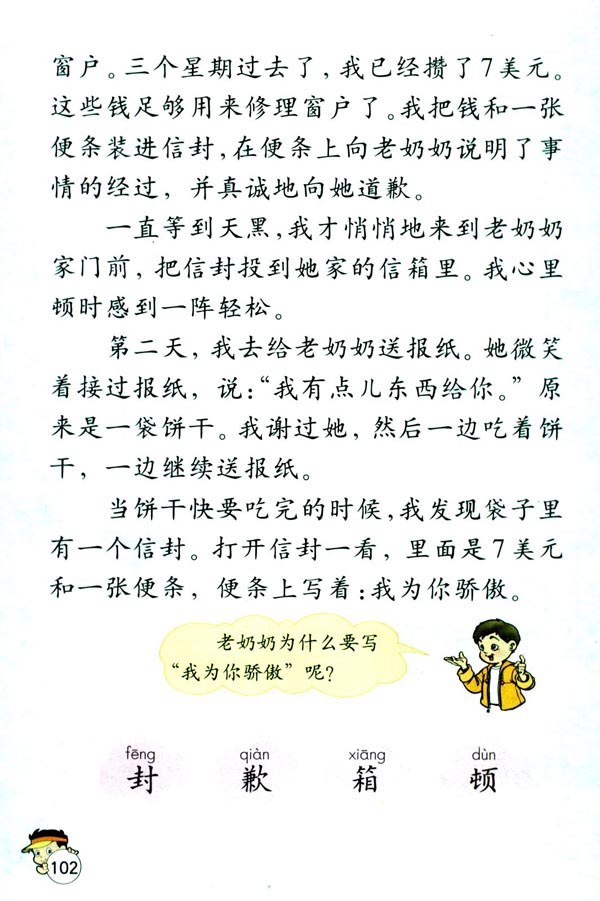 窗户。三个星期过去了，我已经攒了7美元。
这些钱足够用来修理窗户了。我把钱和一张
便条装进信封，在便条上向老奶奶说明了事
情的经过，并真诚地向她道歉。
一直等到天黑，我才悄悄地来到老奶奶
家门前，把信封投到她家的信箱里。我心里
顿时感到一阵轻松。
第二天，我去给老奶奶送报纸。她微笑
着接过报纸，说：“我有点儿东西给你。”原
来是一袋饼干。我谢过她，然后一边吃着饼
干，一边继续送报纸。
当饼干快要吃完的时候，我发现袋子里
有一个信封。打开信封一看，里面是7美元
和一张便条，便条上写着：我为你骄傲。
老奶奶为什么要写
“我为你骄傲”呢？
fēng qiàn xiāng dùn
封 歉 箱 顿
102